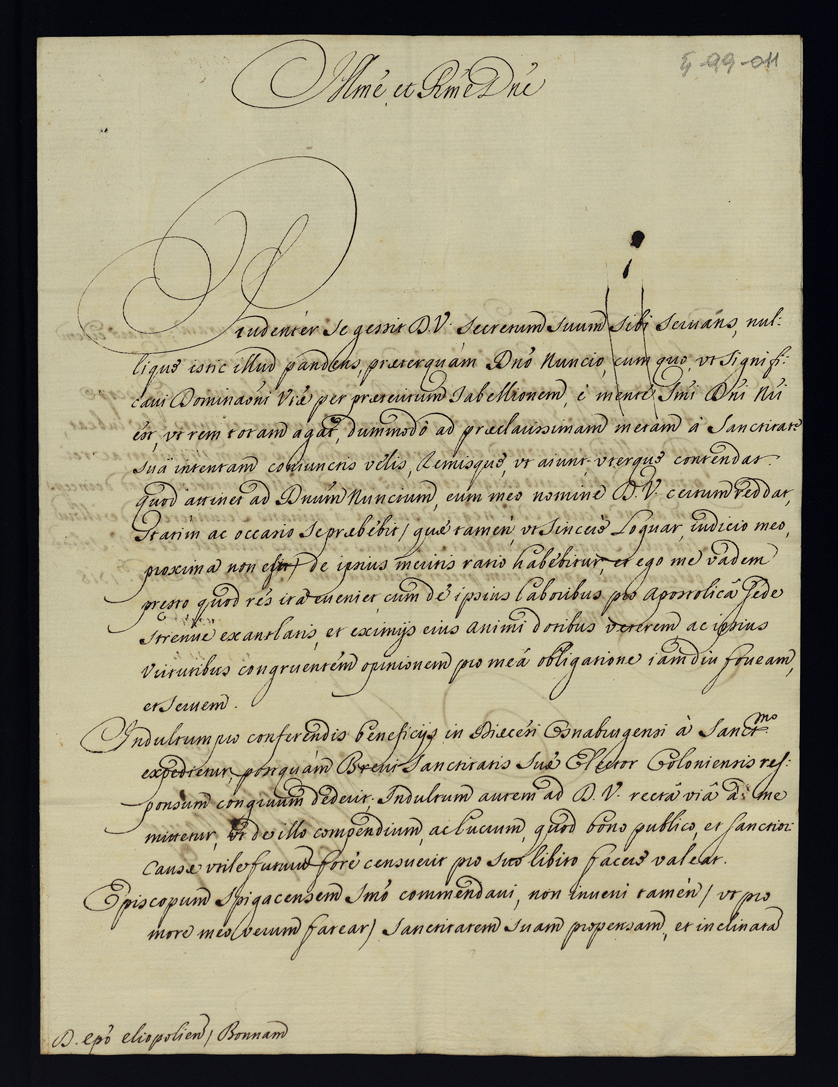 Illmé et Rmé Dné
ξ-99-011
Prudentér se gessit D.V. secretum suum sibi seruáns, nul:
lique istic illud pandens, præterquám Dnó Nuncio, cum quo, vt signifi:
caui Dominaõni Vræ per præteritum Tabellionem, é menté Smi Dni Nri
ést, vt rem totam agat, dummodò ad præclarissimam metam à Sanctitate
suâ intentam coniunctis vélis, Remisque, vt aiunt vterque contendat.
quod attinet ad Dnum Nuncium, eum meo nomine D.V. certum reddat,
statim ac occasio se præbébit / quæ tamén, vt sinceré Loquar, iudicio meo,
proxima non erit / de ipsius meritis ratio habébitur, et ego me vádem
presto quod rés ita eueniet, cum dé ipsius laboribus pro Apostolicâ Sede
strenué exantlatis, et eximijs eius animi dotibus veterem ac ipsius
Virtutibus congruentém opinionem pro meâ obligatione iamdiu foueam,
et seruem.
Indultum pro conferendis beneficijs in Diœcési Osnaburgensi à Sanct.mo
expedietur, postquám Breui Sanctitatis Suæ Elector Coloniensis res:
ponsum congruum dederit; Indultum autem ad D.V. rectâ viâ à me
mittetur, vt de illo compendium, ac lucrum, quod bono publico, et sanctiori
Causæ vtile futurum foré censuerit pro suo libito facere valeat.
Episcopum Spigacensem Smó commendaui, non inueni tamén / vt pro
more meo verum fatear / Sanctitatem suam propensam, et inclinatã
D. epó eliopolien / Bonnam